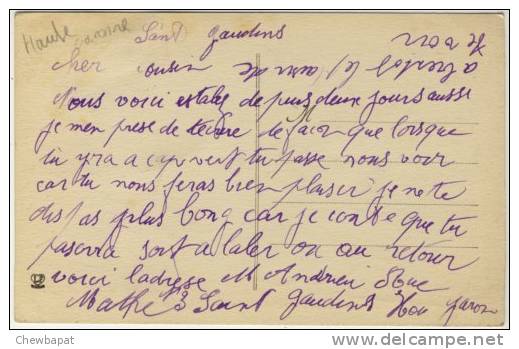 Haute garonne
Saint gaudens
cher cousin
Nous voici estales depuis deux jours aussi
je men prese de tecrire de facon que lorsque
tu yra a capvert tu passe nous voir
car tu nous feras bien plaisir je ne te
dis pas plus long car je conte que tu
pasera soit a laler ou au retour
voici ladresse M Andrieu Rue
Mathe 3 Saint gaudens Hau garon
Chewbapat
delcampe.net